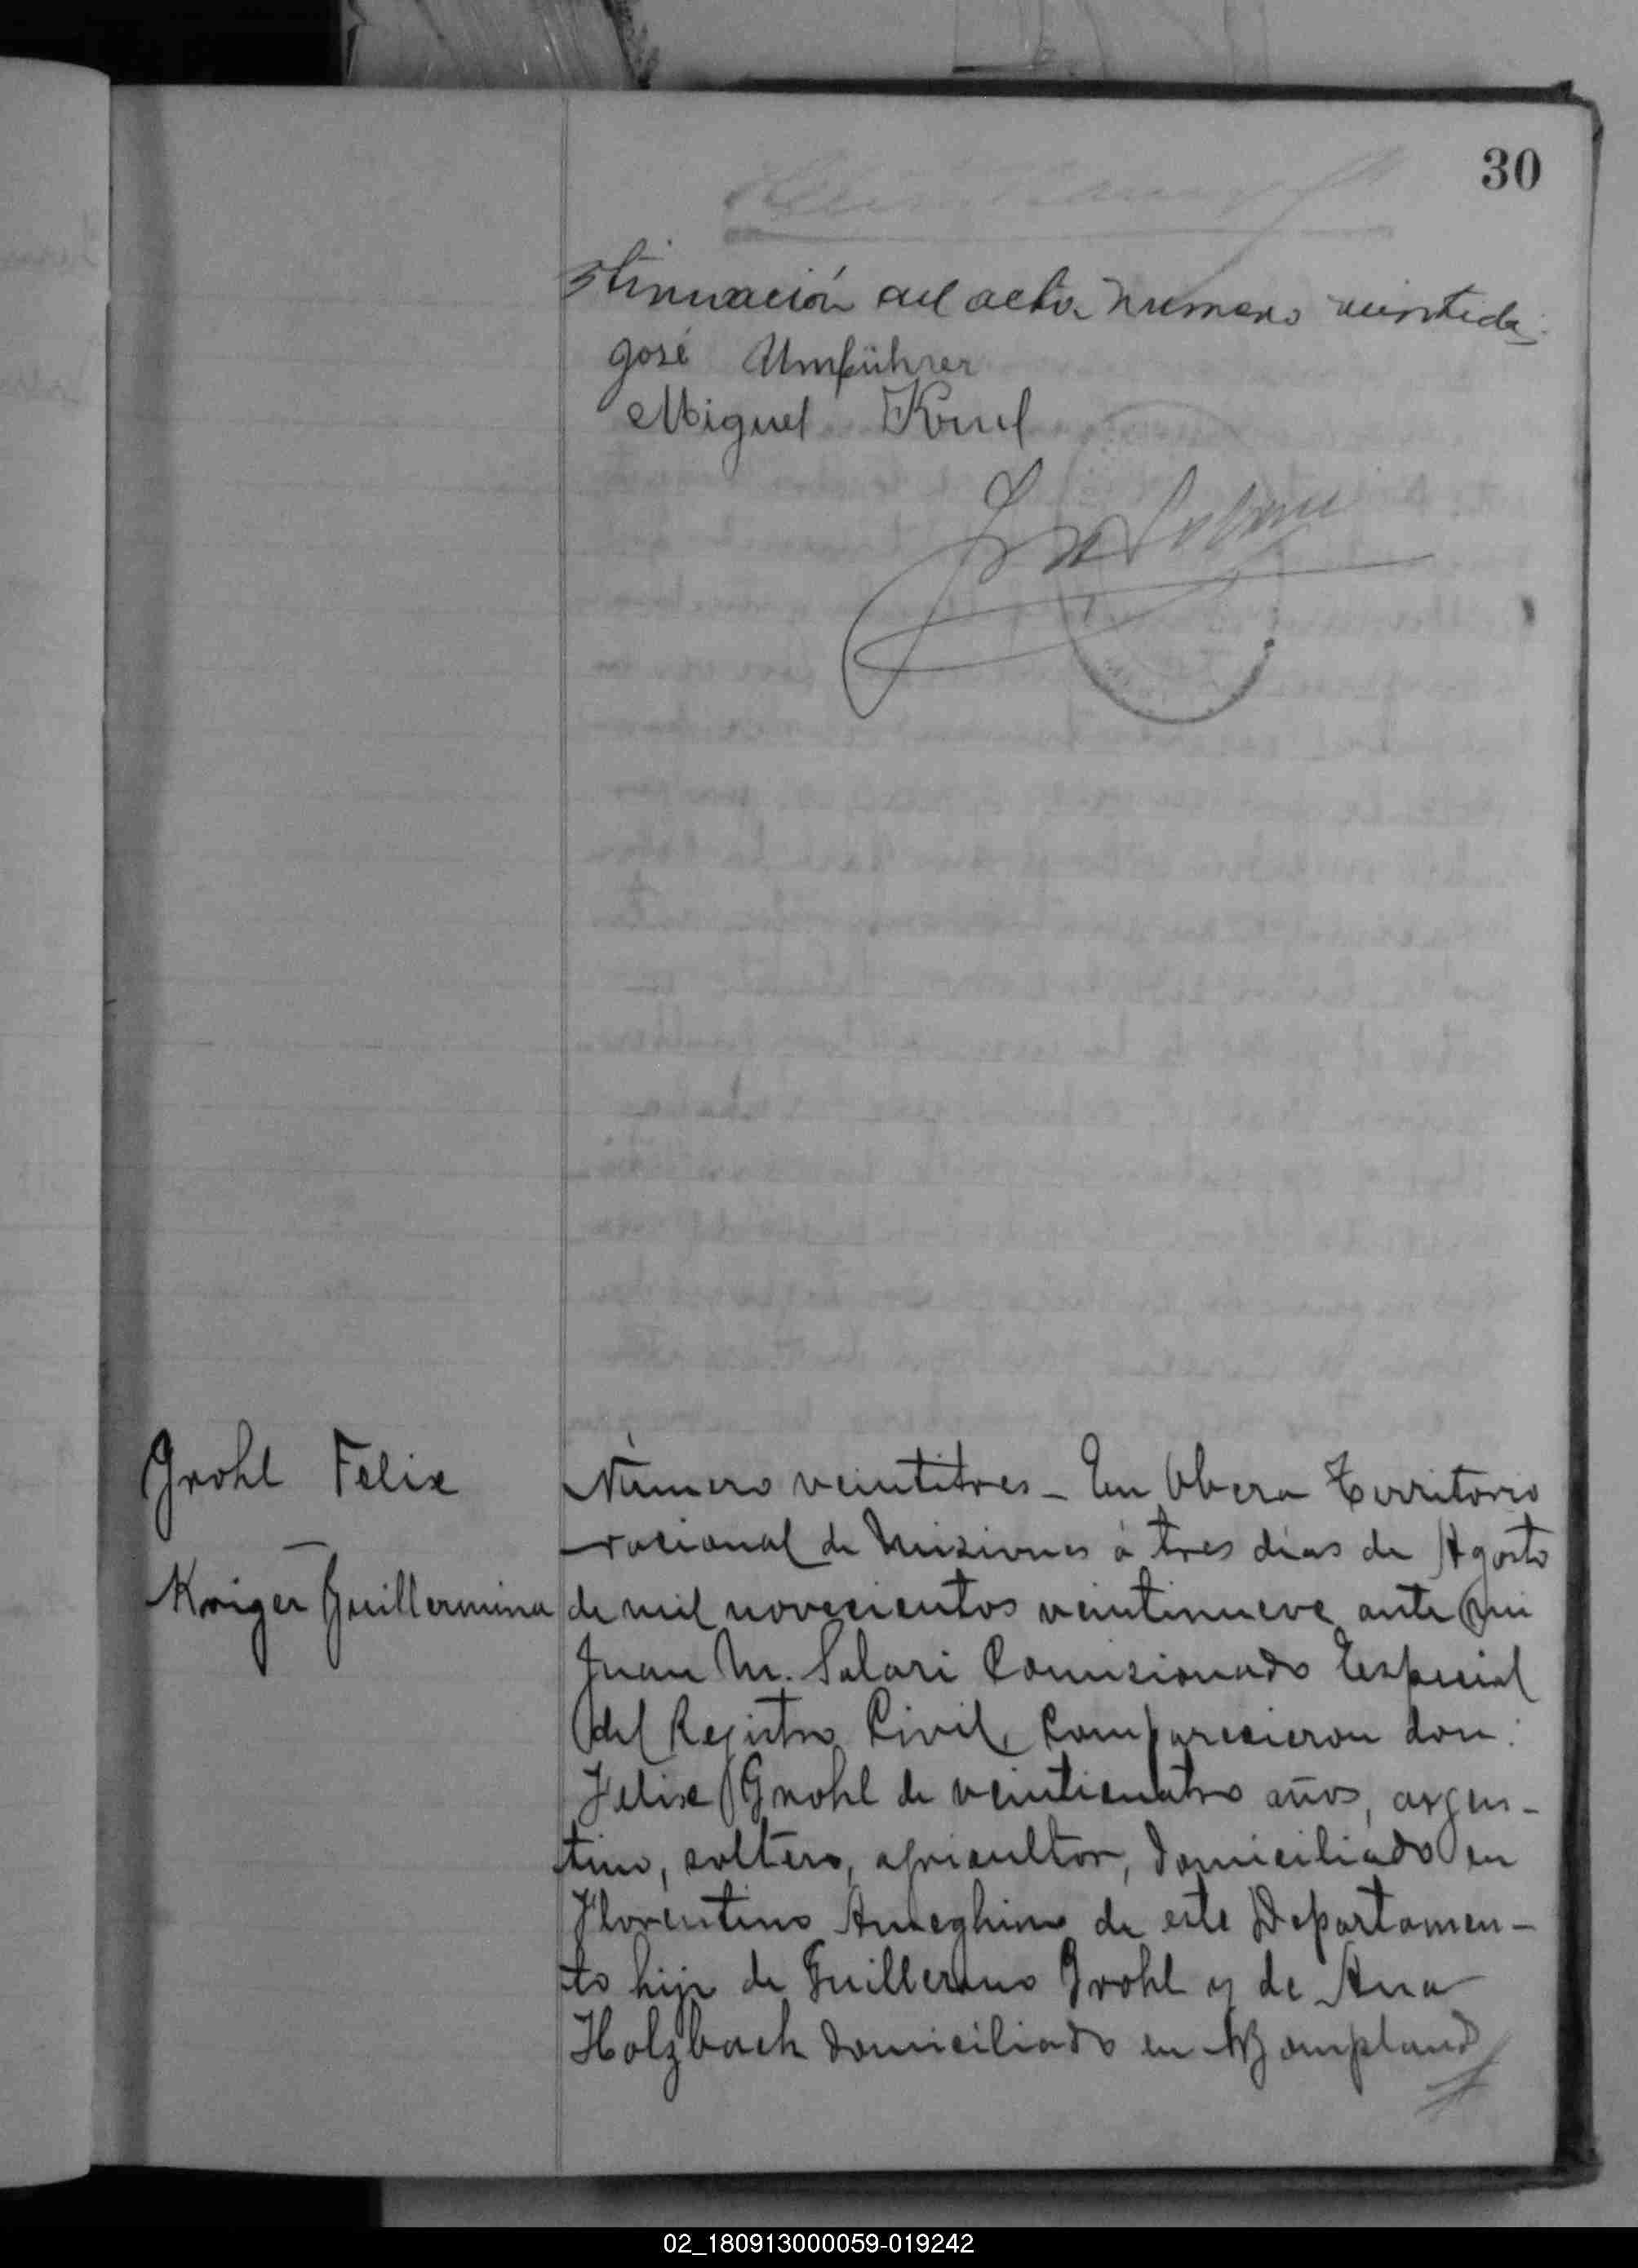 30
stinuación del acta numero veintidos
José Umführer
Miguel
Grohl Felix
Kriger Guillermina
Número veintitres - En Obera Territorio
nacional de Misiones á tres dias de Agosto
de mil novecientos veintinueve ante mi
Juan M. Salari Comisionado Especial
del Registro Civil, Comparecieron don:
Felix Grohl de veinticuatro años, argen-
tino, soltero, agricultor, domiciliado en
Florentino Ameghino de este Departamen-
to hijo de Guillermo Grohl y de Ana
Holzbach domiciliado en Bompland
02_180913000059-019242